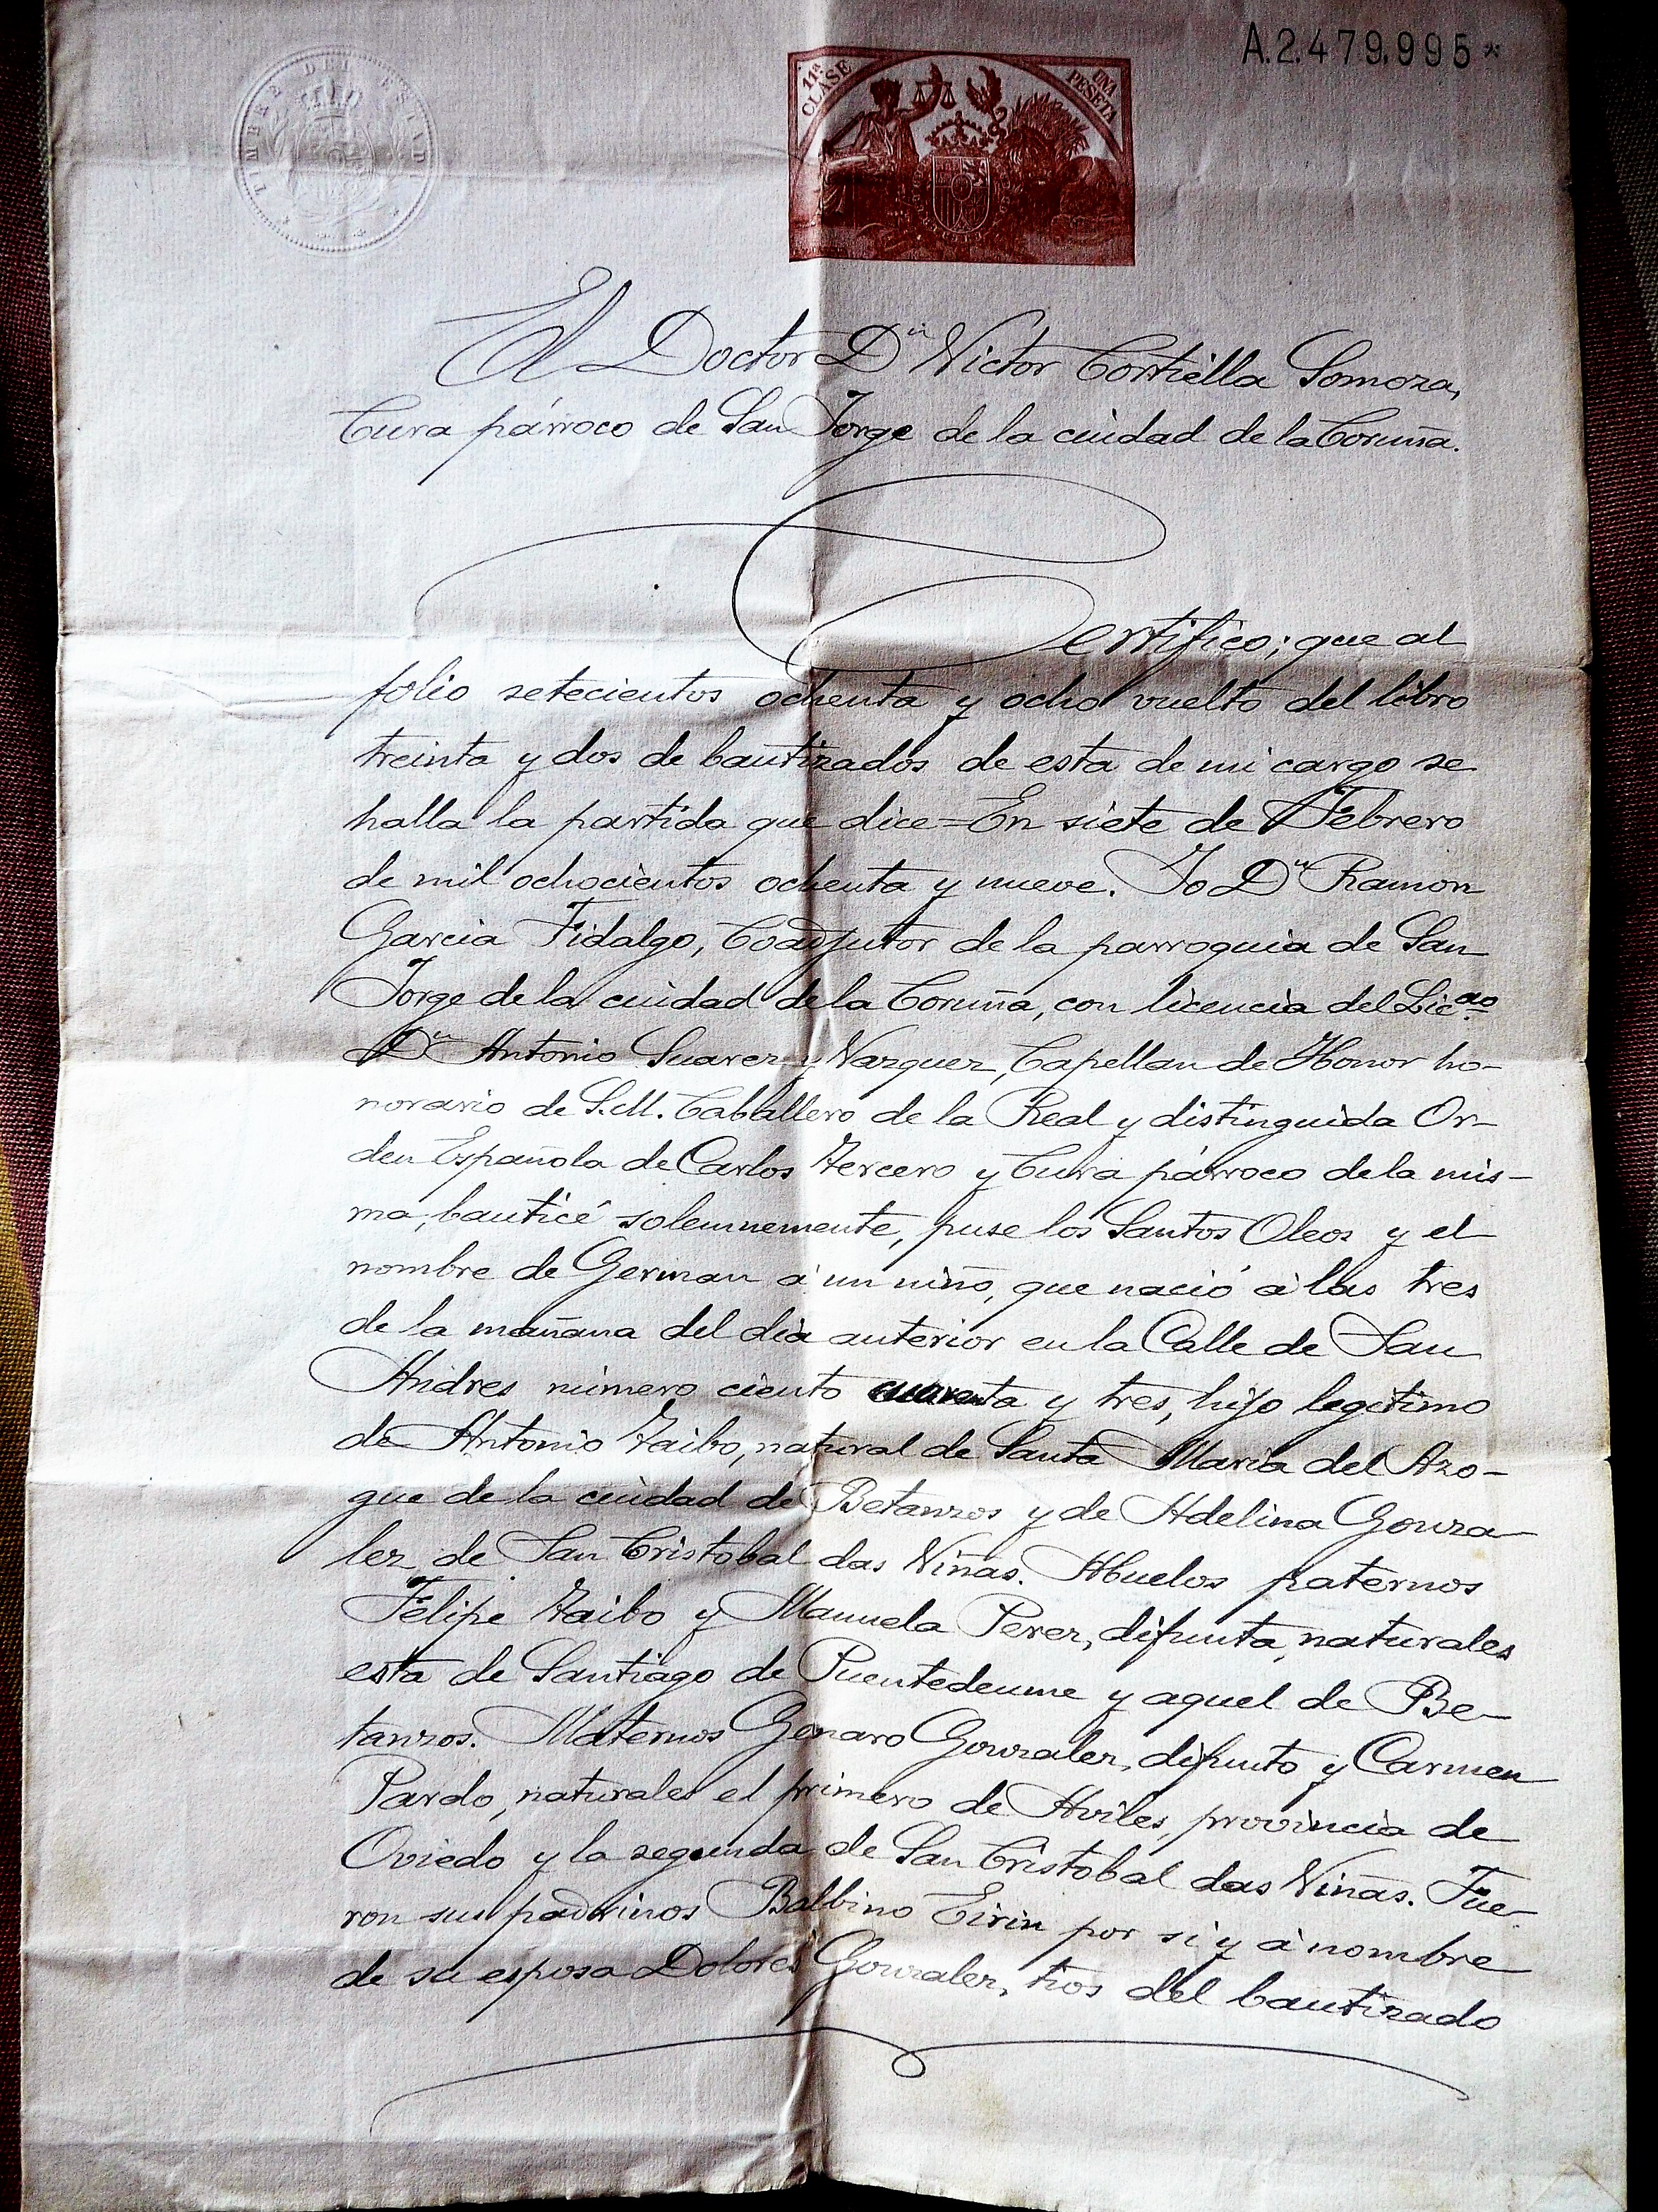 TIMBRE DEL ESTADO
11ª CLASE
UNA PESETA
A.2.479.995*
El Doctor Dⁿ Victor Cortiella Somoza,
Cura párroco de San Jorge de la ciudad de la Coruña.
Certifico; que al
folio setecientos ochenta y ocho vuelto del libro
treinta y dos de bautizados de esta de mi cargo se
halla la partida que dice=En siete de Febrero
de mil ochocientos ochenta y nueve. Yo Dⁿ Ramon
Garcia Fidalgo, Coadjutor de la parroquia de San
Jorge de la ciudad de la Coruña, con licencia del Licᵈᵒ
Dⁿ Antonio Suarez y Vazquez, Capellan de Honor ho-
norario de S.M. Caballero de la Real y distinguida Or-
den Española de Carlos Tercero y Cura párroco de la mis-
ma, bauticé solemnemente, puse los Santos Oleos y el
nombre de German á un niño, que nació á las tres
de la mañana del dia anterior en la Calle de San
Andres número ciento cuarenta y tres, hijo legitimo
de Antonio Taibo, natural de Santa Maria del Azo-
gue de la ciudad de Betanzos y de Adelina Gonza-
lez, de San Cristobal das Viñas. Abuelos paternos
Felipe Taibo y Manuela Perez, difunta, naturales
esta de Santiago de Puentedeume y aquel de Be-
tanzos. Maternos Genaro Gonzalez, difunto y Carmen
Pardo, naturales el primero de Aviles, provincia de
Oviedo y la segunda de San Cristobal das Viñas. Fue-
ron sus padrinos Balbino Eirin por si y á nombre
de su esposa Dolores Gonzalez, tios del bautizado